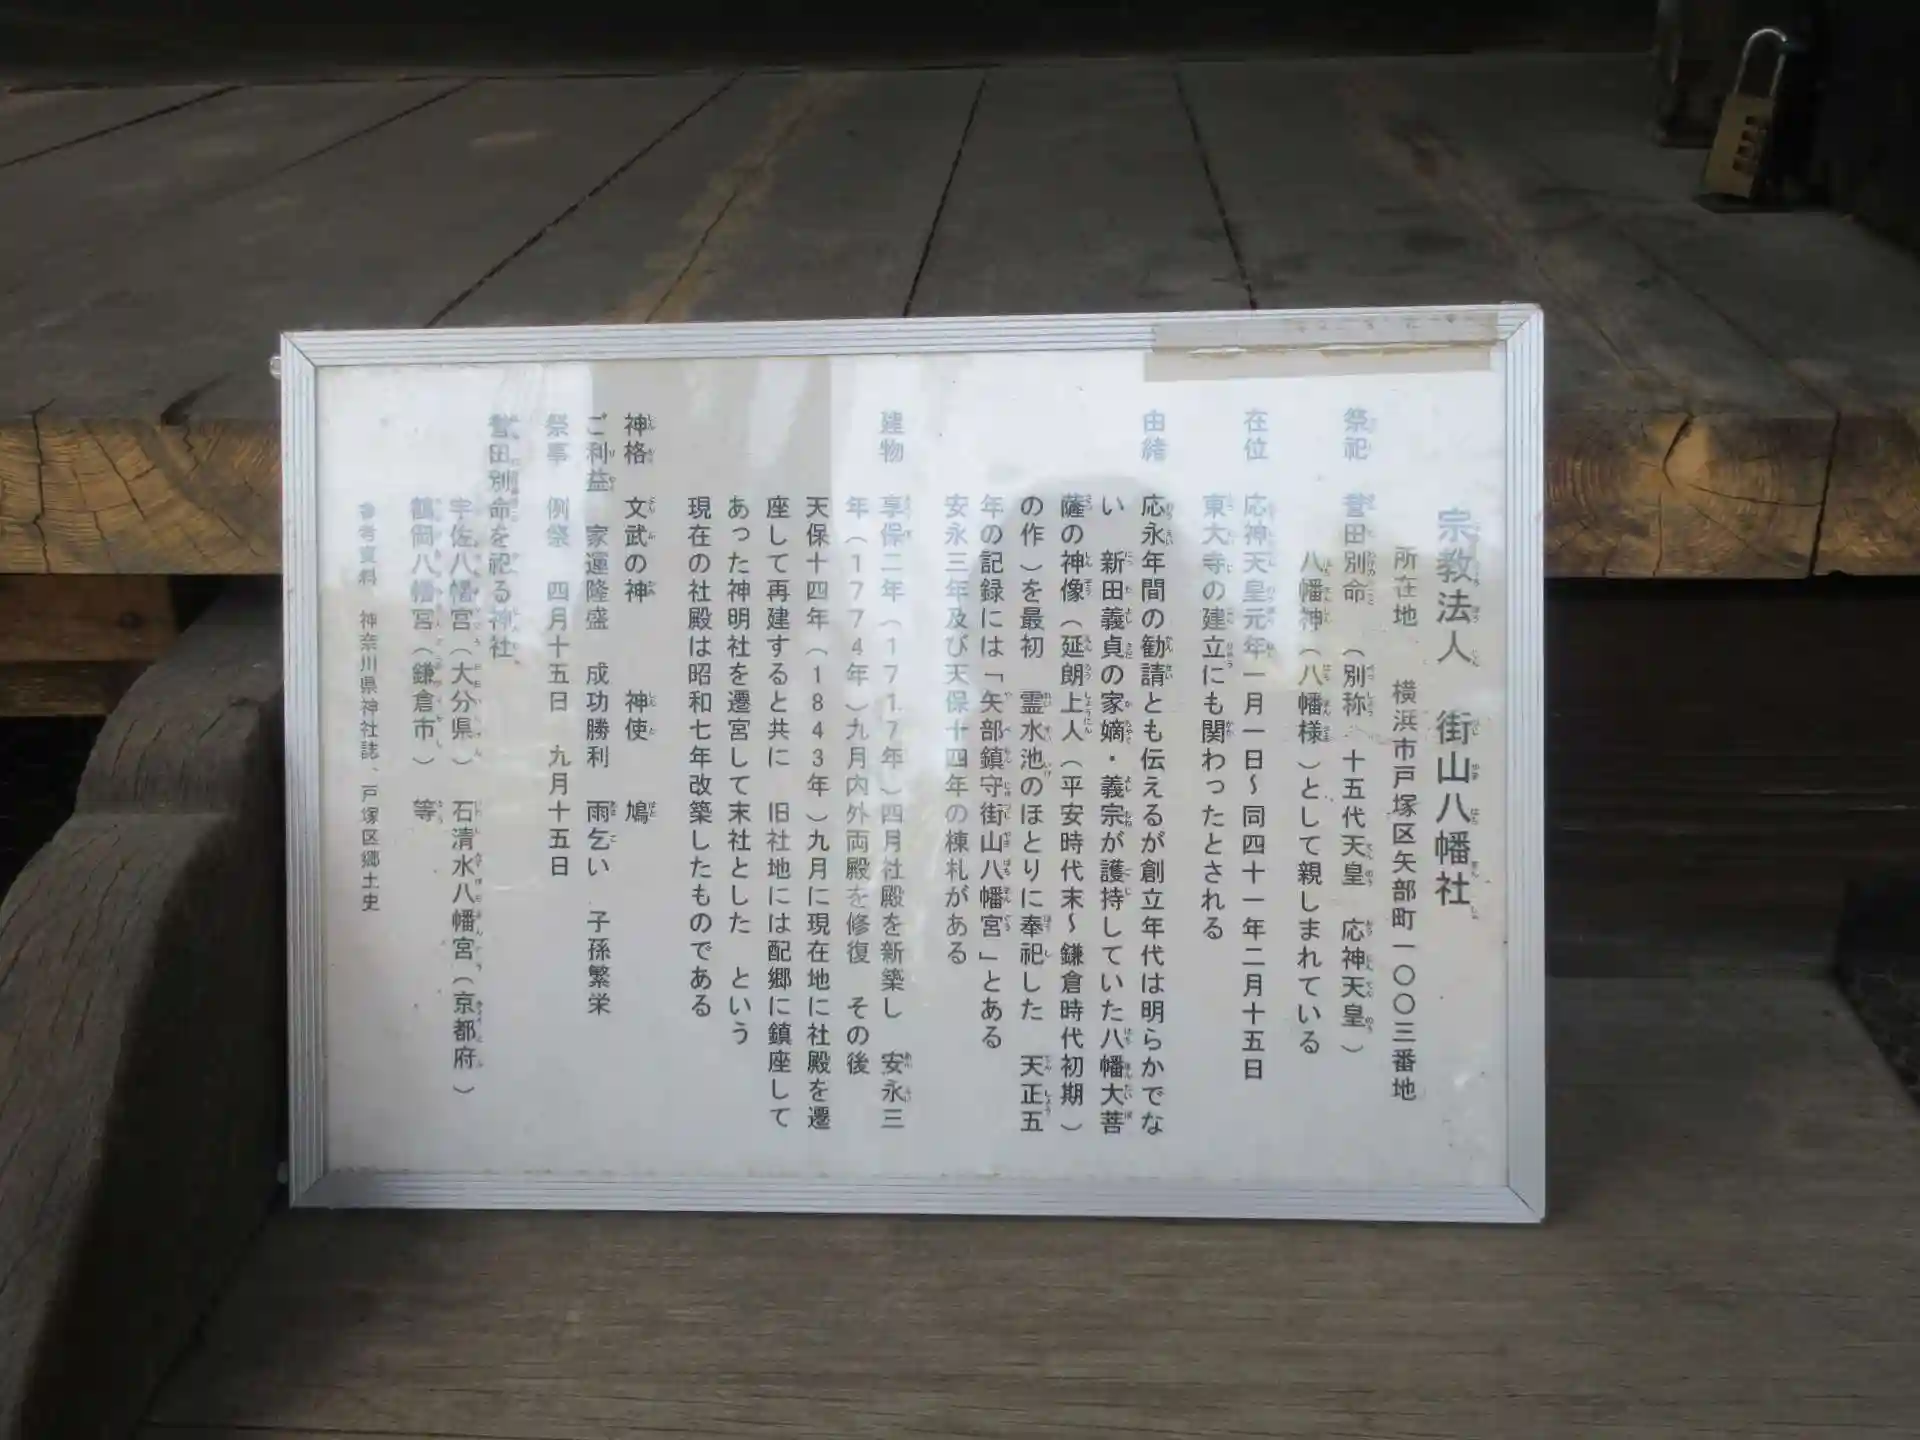 宗教法人 街山八幡社
所在地 横浜市戸塚区矢部町一〇〇三番地
祭祀 誉田別命 (別称 十五代天皇 応神天皇)
八幡神(八幡様)として親しまれている
在位 応神天皇元年一月一日~同四十一年二月十五日
東大寺の建立にも関わったとされる
由緒 応永年間の勧請とも伝えるが創立年代は明らかでな
い 新田義貞の家嫡・義宗が護持していた八幡大菩
薩の神像(延朗上人(平安時代末~鎌倉時代初期)
の作)を最初 霊水池のほとりに奉祀した 天正五
年の記録には「矢部鎮守街山八幡宮」とある
安永三年及び天保十四年の棟札がある
建物 享保二年(1717年)四月社殿を新築し 安永三
年(1774年)九月内外両殿を修復 その後
天保十四年(1843年)九月に現在地に社殿を遷
座して再建すると共に 旧社地には配郷に鎮座して
あった神明社を遷宮して末社とした という
現在の社殿は昭和七年改築したものである
神格 文武の神 神使 鳩
ご利益 家運隆盛 成功勝利 雨乞い 子孫繁栄
祭事 例祭 四月十五日 九月十五日
誉田別命を祀る神社、
宇佐八幡宮(大分県) 石清水八幡宮(京都府)
鶴岡八幡宮(鎌倉市) 等
参考資料 神奈川県神社誌、戸塚区郷土史